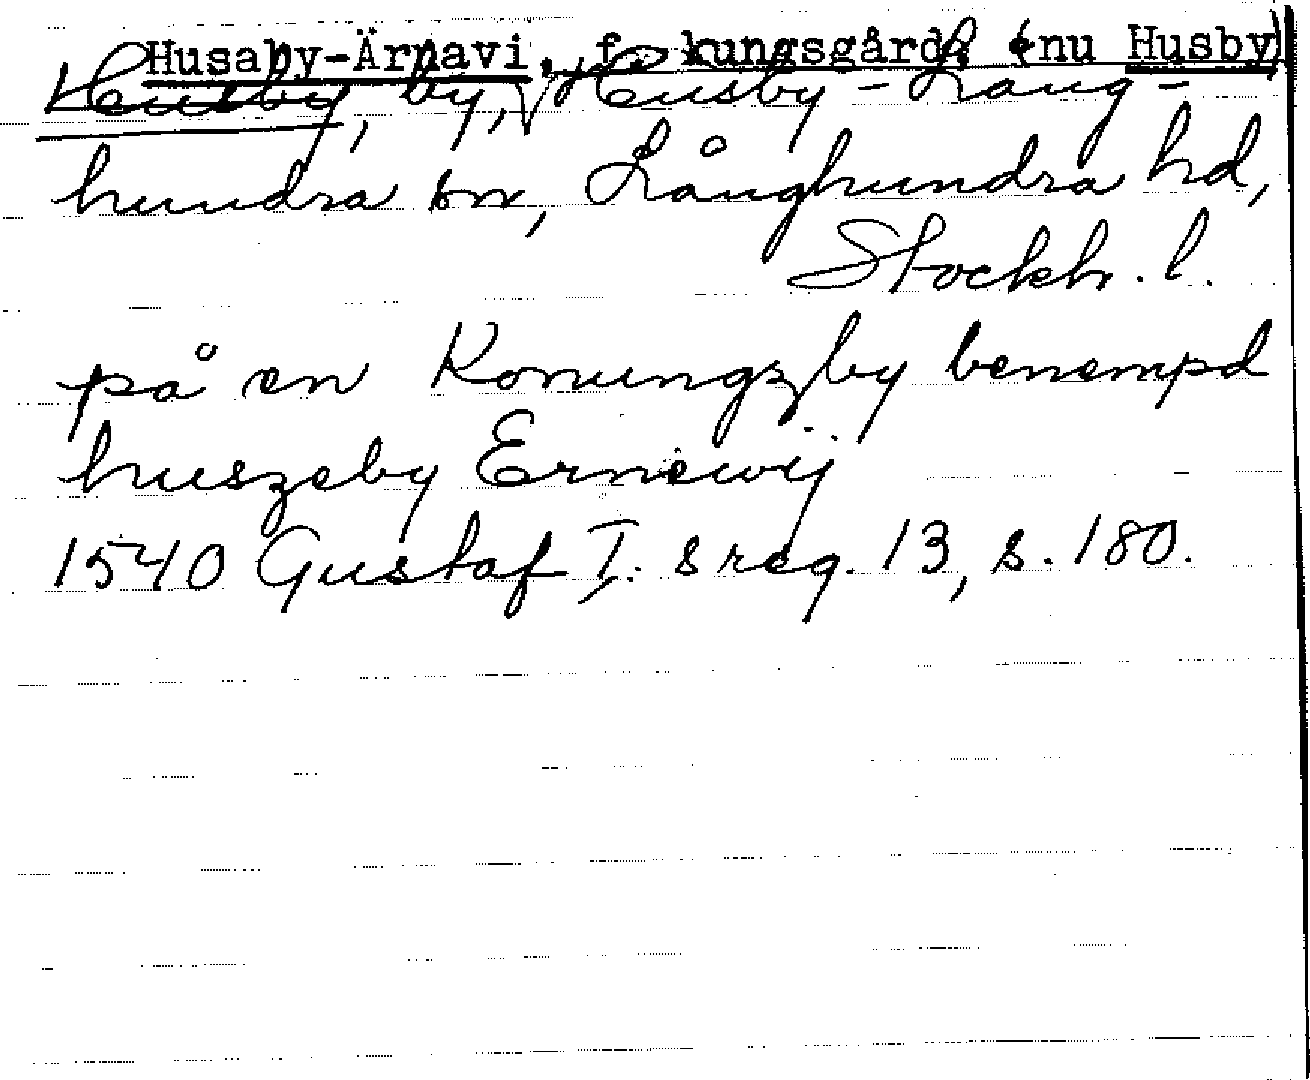 Husaby-Ärnavi, f. kungsgård, (nu Husby)
Husby, by, Husby-Lång-
hundra sn, Långhundra hd,
Stockh. l.
på en Konungzby benempd
huszeby Ernewÿ
1540 Gustaf I:s reg. 13, s. 180.